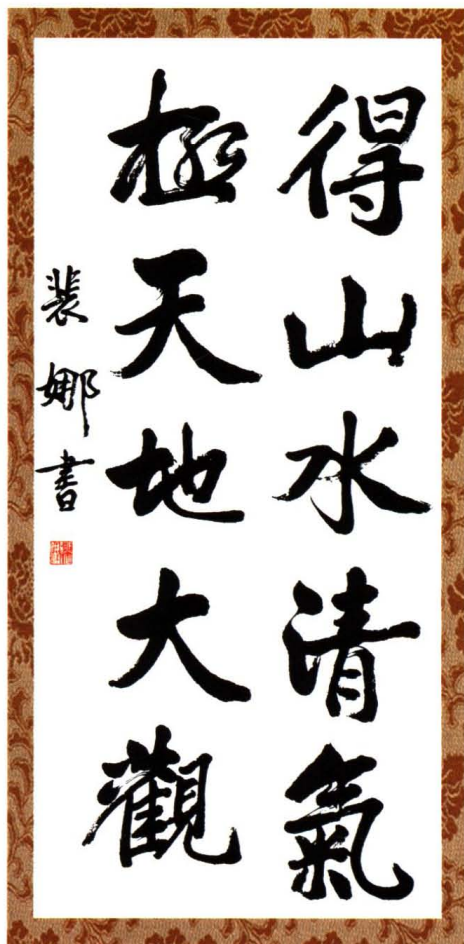 得山水清氣
極天地大觀
裴娜書